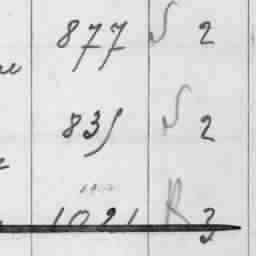 877 S 2
835 S 2
1021 R 3